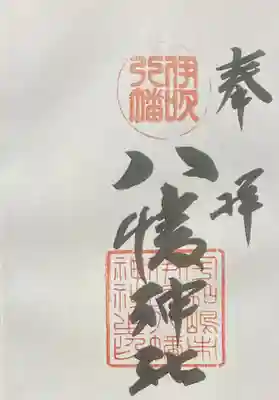 奉拝
八幡神社
伊吹八幡